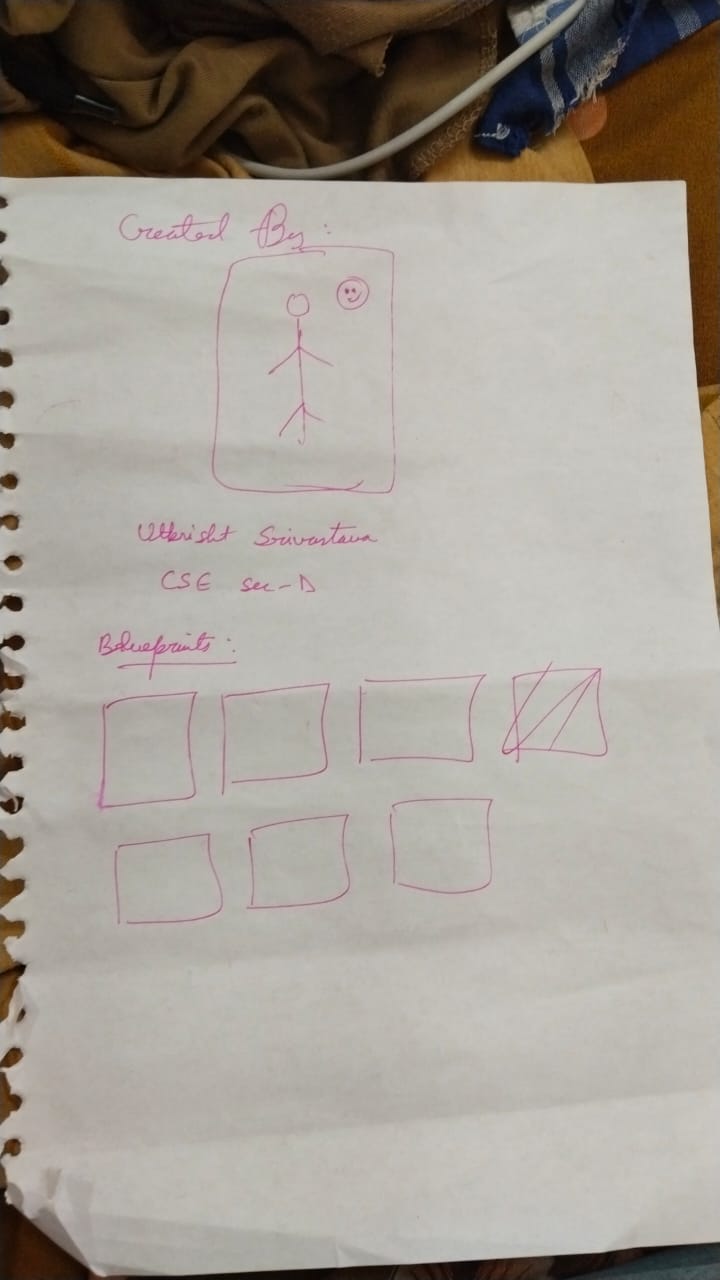 Created By:
Utkrisht Srivastava
CSE sec-D
Blueprints: